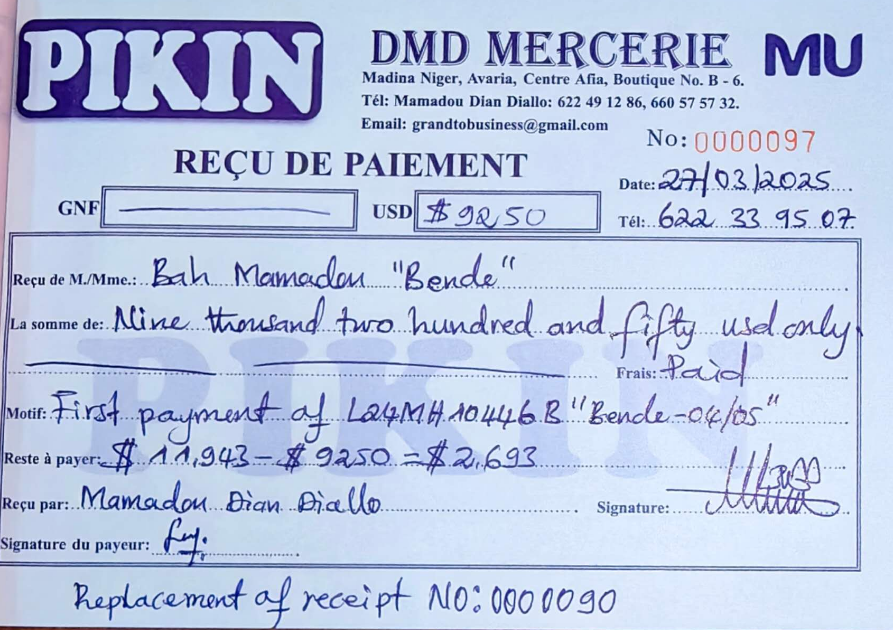 PIKIN
DMD MERCERIE
MU
Madina Niger, Avaria, Centre Afia, Boutique No. B - 6.
Tél: Mamadou Dian Diallo: 622 49 12 86, 660 57 57 32.
Email: grandtobusiness@gmail.com
No: 0000097
REÇU DE PAIEMENT
Date: 27/03/2025
GNF
USD $ 9250
Tél: 622 33 95 07
Reçu de M./Mme.: Bah Mamadou "Bende"
La somme de: Nine thousand two hundred and fifty usd only
Frais: Paid
Motif: First payment of L24MH10446B "Bende-04/05"
Reste à payer: $ 11,943 - $ 9250 = $ 2,693
Reçu par: Mamadou Dian Diallo
Signature:
Signature du payeur:
Replacement of receipt NO: 0000090
PIKIN